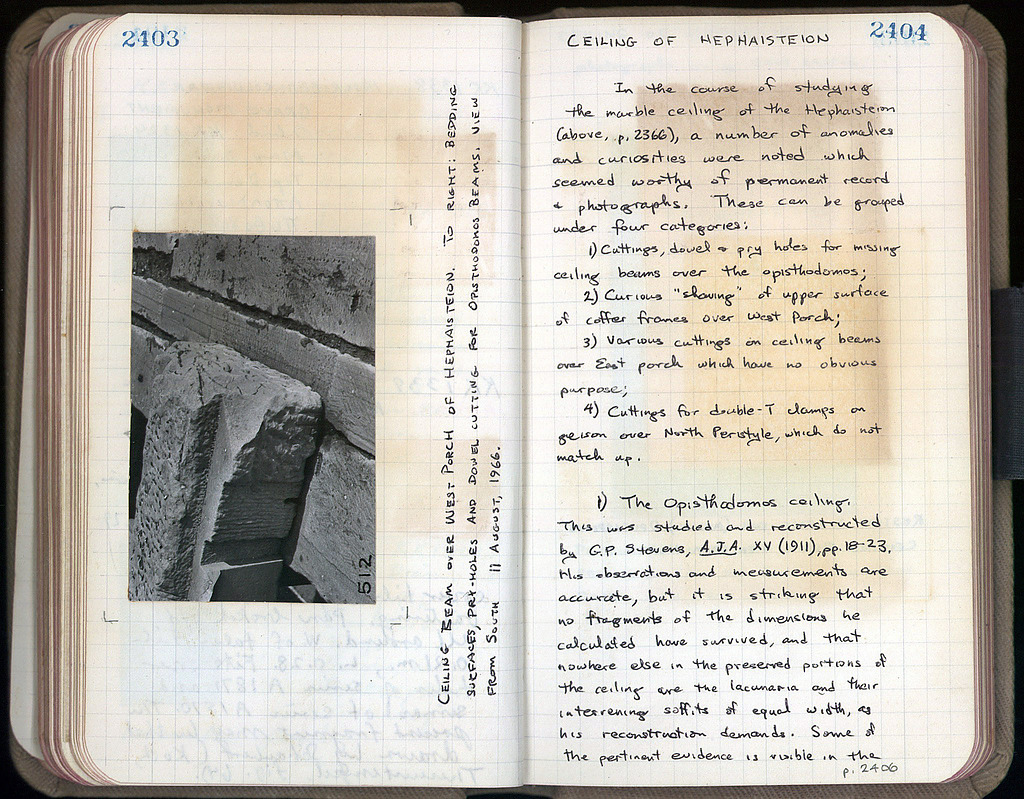 2403
CEILING BEAM OVER WEST PORCH OF HEPHAISTEION. TO RIGHT: BEDDING
SURFACES, PRY-HOLES AND DOWEL CUTTING FOR OPISTHODOMOS BEAMS. VIEW
FROM SOUTH 11 AUGUST, 1966.
512
2404
CEILING OF HEPHAISTEION
In the course of studying
the marble ceiling of the Hephaisteion
(above, p. 2366), a number of anomalies
and curiosities were noted which
seemed worthy of permanent record
& photographs. These can be grouped
under four categories:
1) Cuttings, dowel & pry holes for missing
ceiling beams over the opisthodomos;
2) Curious "shaving" of upper surface
of coffer frames over West Porch;
3) Various cuttings on ceiling beams
over East porch which have no obvious
purpose;
4) Cuttings for double-T clamps on
geison over North Peristyle, which do not
match up.
1) The Opisthodomos ceiling.
This was studied and reconstructed
by G.P. Stevens, A.J.A. XV (1911), pp. 18-23.
His observations and measurements are
accurate, but it is striking that
no fragments of the dimensions he
calculated have survived, and that
nowhere else in the preserved portions of
the ceiling are the lacunaria and their
intervening soffits of equal width, as
his reconstruction demands. Some of
the pertinent evidence is visible in the
p. 2406